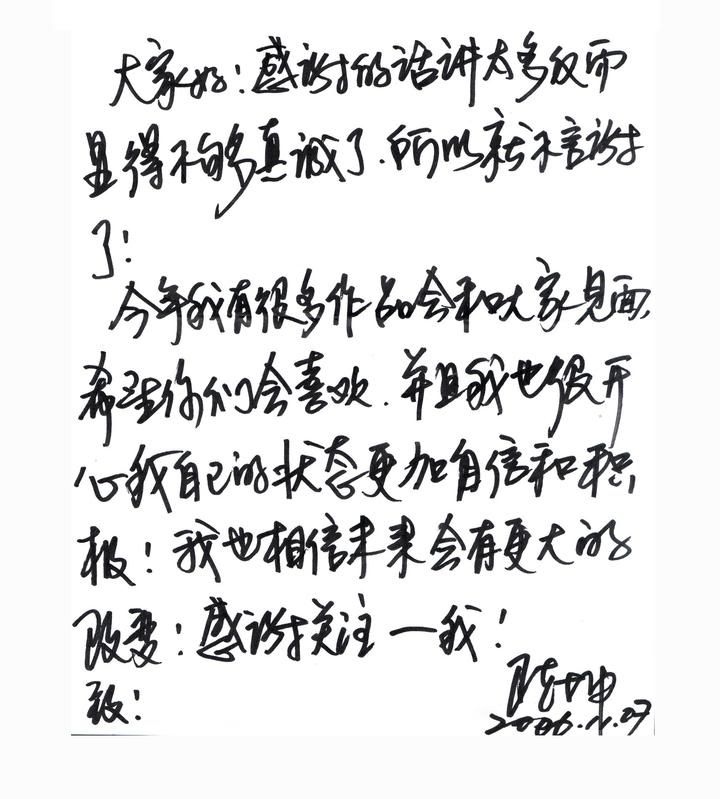 大家好！感谢的话讲太多反而
显得不够真诚了.所以就不言谢
了！
今年我有很多作品会和大家见面,
希望你们会喜欢.并且我也很开
心我自己的状态更加自信和积
极！我也相信未来会有更大的
改变！感谢关注—我！
致！
陈坤
2006.11.07